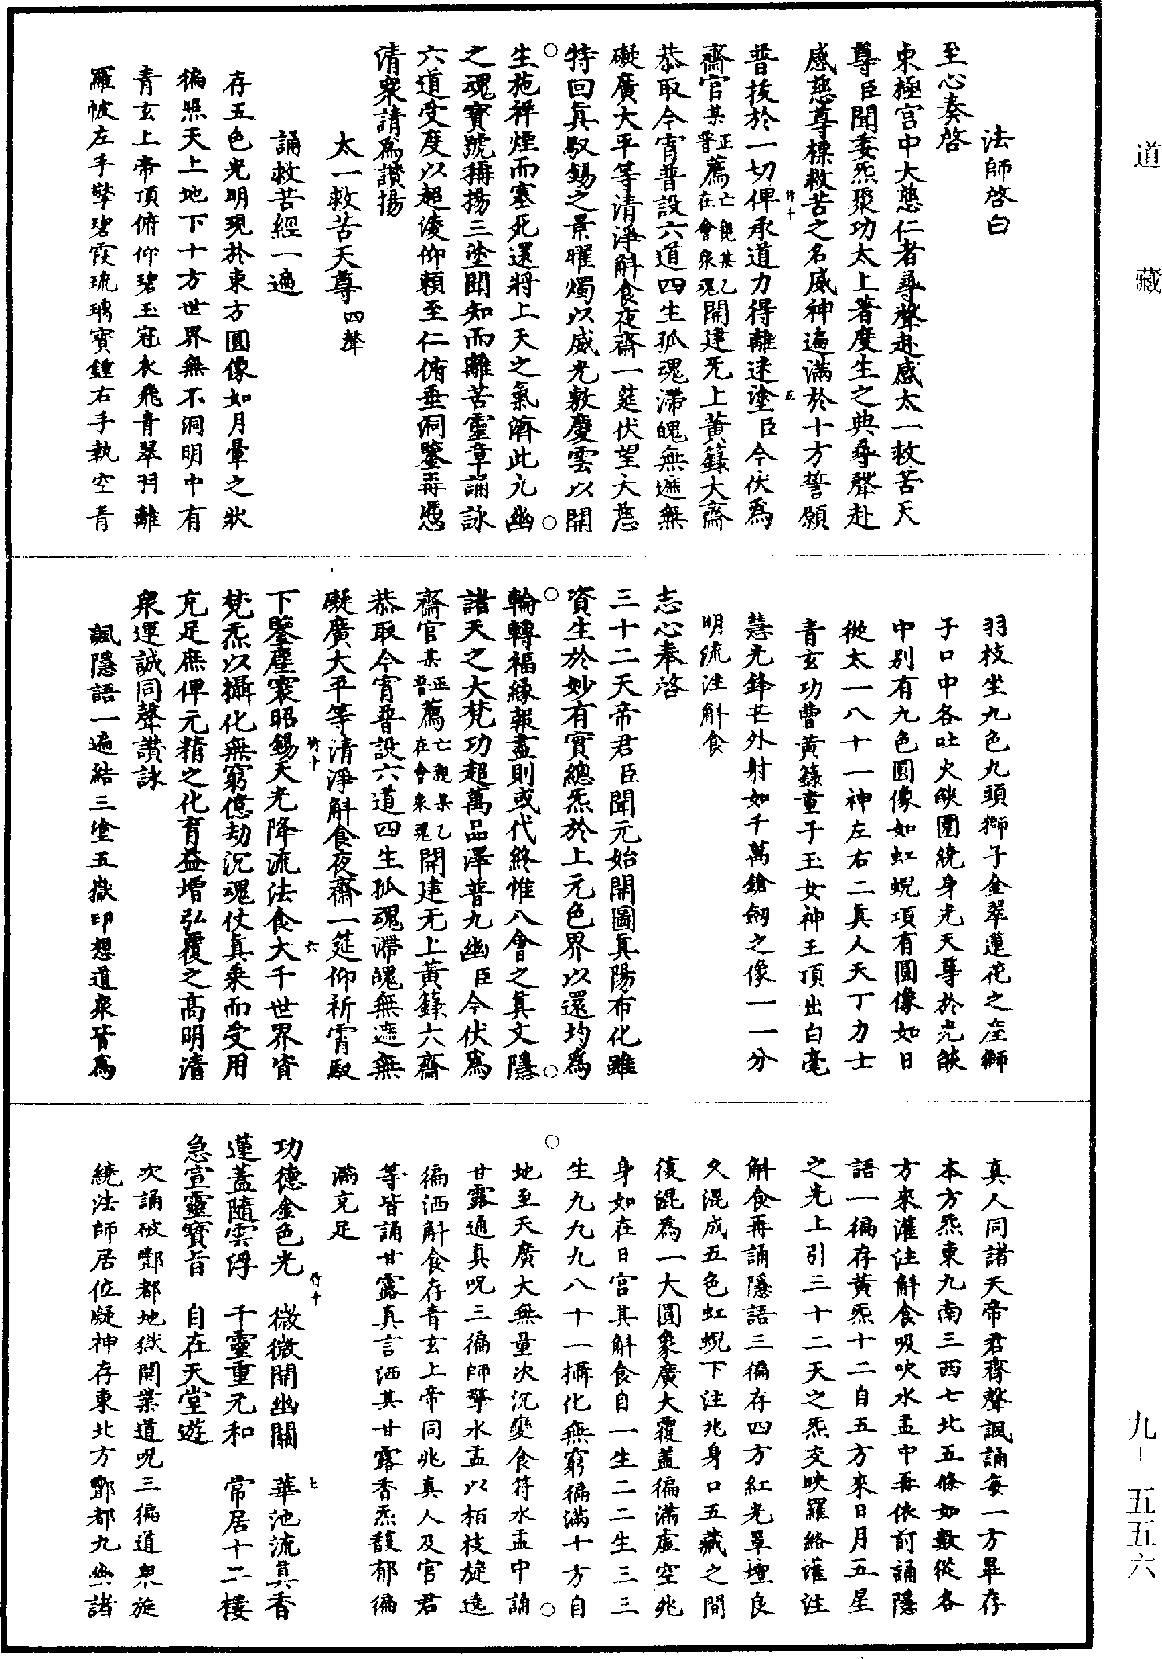 道藏
九—五五六
法師啓白
至心奏啓
東極宮中大慈仁者尋聲赴感太一救苦天
尊臣聞委炁聚功太上著度生之典尋聲赴
感慈尊標救苦之名威神遍滿於十方誓願
普拔於一切俾承道力得離迷塗臣今伏爲
齋官某正普薦亡親某乙在會衆魂開建无上黃籙大齋
恭取今宵普設六道四生孤魂滯魄無遮無
礙廣大平等清淨斛食夜齋一筵伏望大慈
特回真馭錫之景曜燭以威光敷慶雲以開
生施祥煙而塞死還將上天之氣濟此九幽
之魂寶號稱揚三塗聞知而離苦靈章誦詠
六道受度以超淩仰賴至仁俯垂洞鑒再慿
清衆請爲讚揚
太一救苦天尊四聲
誦救苦經一遍
存五色光明現於東方圓像如月暈之狀
徧照天上地下十方世界無不洞明中有
青玄上帝頂俯仰碧玉冠衣飛青翠羽離
羅帔左手擎碧霞琉璃寶鍾右手執空青
羽枝坐九色九頭獅子金翠蓮花之座獅
子口中各吐火燄圍繞身光天尊於光燄
中别有九色圓像如虹蜺項有圓像如日
從太一八十一神左右二真人天丁力士
青玄功曹黃籙童子玉女神王頂出白毫
慧光鋒芒外射如千萬鎗劒之像一一分
明流注斛食
志心奉啓
三十二天帝君臣聞元始開圖真陽布化雖
資生於妙有實總炁於上元色界以還均爲
輪轉福緣報盡則或代終惟八會之真文隱
諸天之大梵功超萬品澤普九幽臣今伏爲
齋官某正普薦亡親某乙在會衆魂開建无上黃籙六齋
恭取今宵普設六道四生孤魂滯魄無遮無
礙廣大平等清淨斛食夜齋一筵仰祈霄馭
下鑒塵寰昭錫天光降流法食大千世界資
梵炁以攝化無窮億劫沉魂仗真乘而受用
充足庶俾元精之化育益增弘覆之高明清
衆運誠同聲讚詠
諷隱語一遍結三塗五嶽印想道衆皆爲
真人同諸天帝君齊聲諷誦每一方畢存
本方炁東九南三西七北五條如數從各
方來灌注斛食吸吹水盂中再依前誦隱
語一徧存黃炁十二自五方來日月五星
之光上引三十二天之炁交映羅絡灌注
斛食再誦隱語三徧存四方紅光罩壇良
久混成五色虹蜺下注兆身口五藏之間
復混爲一大圓象廣大覆蓋徧滿虛空兆
身如在日宮其斛食自一生二二生三三
生九九九八十一攝化無窮徧滿十方自
地至天廣大無量次沉變食符水盂中誦
甘露通真呪三徧師擎水盂以栢枝旋遶
徧洒斛食存青玄上帝同兆真人及官君
等皆誦甘露真言洒其甘露香炁馥郁徧
滿充足
功德金色光 微微開幽關 華池流真香
蓮蓋隨雲浮 千靈重元和 常居十二樓
急宣靈寶旨 自在天堂遊
次誦破酆都地獄開業道呪三徧道衆旋
繞法師居位凝神存東北方酆都九幽諸